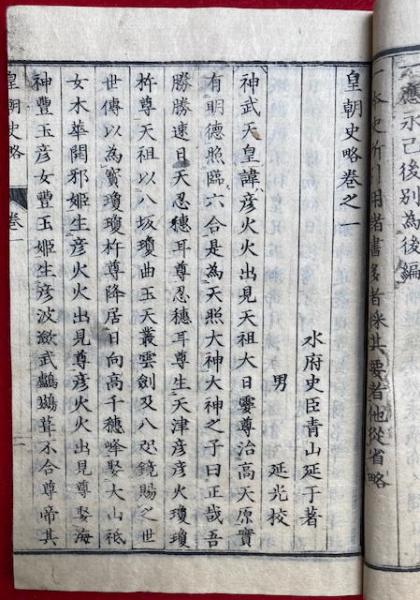 一應永己後別為後編
一本史所用者書多者採其要者他從省略
皇朝史略卷之一
水府史臣青山延于著
男 延光校
神武天皇諱彥火火出見天祖大日孁尊治高天原實
有明德照臨六合是為天照大神大神之子曰正哉吾
勝勝速日天忍穗耳尊忍穗耳尊生天津彥彥火瓊瓊
杵尊天祖以八坂瓊曲玉天叢雲劍及八咫鏡賜之世
世傳以為寶瓊瓊杵尊降居日向高千穗峰娶大山祇
女木華開邪姬生彥火火出見尊彥火火出見尊娶海
神豐玉彥女豐玉姬生彥波瀲武鸕鷀葺不合尊帝其
皇朝史略 卷一 一